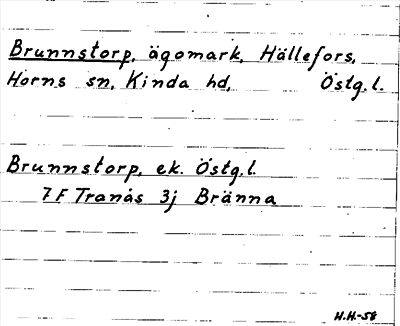 Brunnstorp, ägomark, Hällefors,
Horns sn, Kinda hd, Östg.l.
Brunnstorp, ek. Östg.l.
7 F Tranås 3j Bränna
H.H.-58